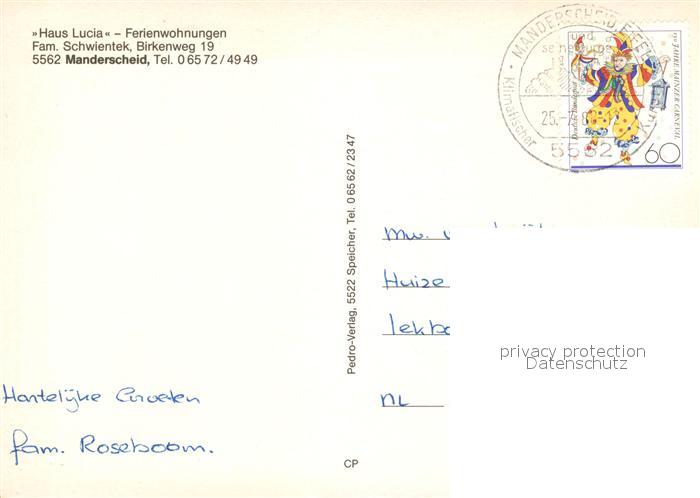 »Haus Lucia« – Ferienwohnungen
Fam. Schwientek, Birkenweg 19
5562 Manderscheid, Tel. 0 65 72 / 49 49
MANDERSCHEID/EIFEL
und
Klimatischer
25.-7.8
5562
150 JAHRE MAINZER CARNEVAL
Deutsche Bundespost
60
Pedro-Verlag, 5522 Speicher, Tel. 0 65 62 / 23 47
Mw.
Huize
lekb
NL
privacy protection
Datenschutz
Hartelijke Groeten
fam. Roseboom.
CP